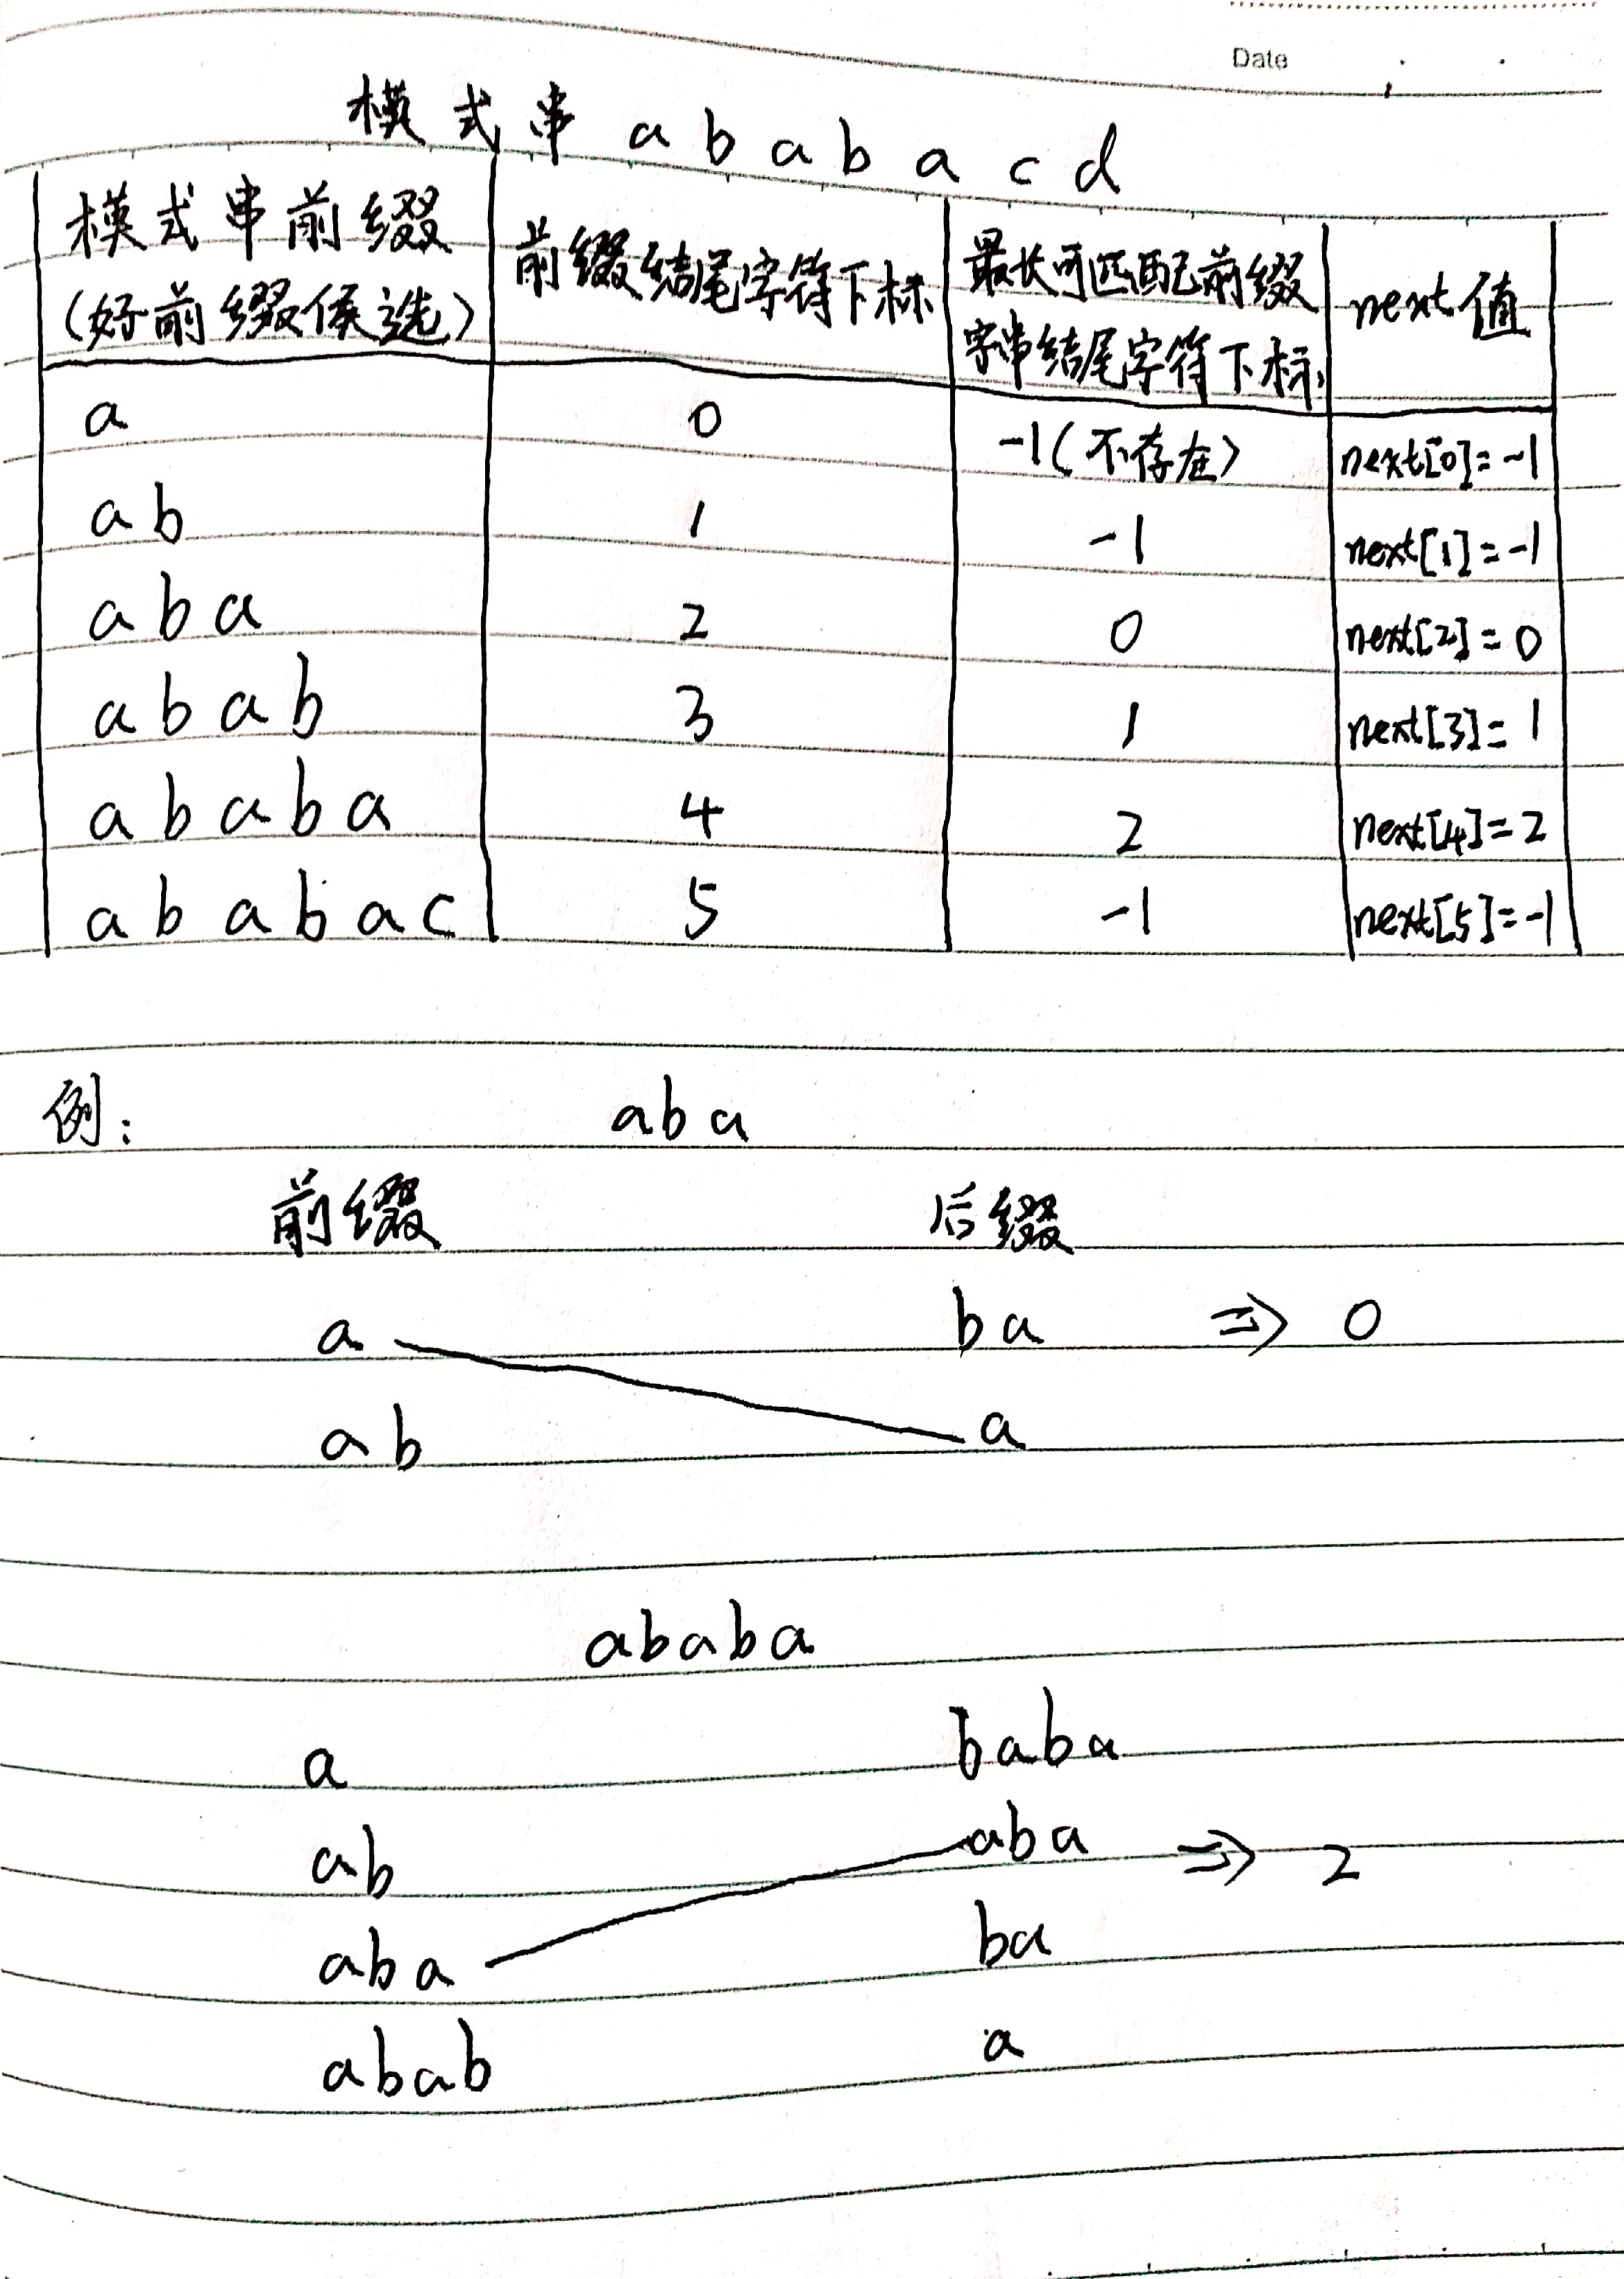 Date
模式串 a b a b a c d
模式串前缀 (好前缀候选) 前缀结尾字符下标 最长可匹配前缀字串结尾字符下标 next值
a 0 -1(不存在) next[0]=-1
a b 1 -1 next[1]=-1
a b a 2 0 next[2]=0
a b a b 3 1 next[3]=1
a b a b a 4 2 next[4]=2
a b a b a c 5 -1 next[5]=-1
例: aba
前缀 后缀
a ba ⇒ 0
ab a
ababa
a baba
ab aba ⇒ 2
aba ba
abab a